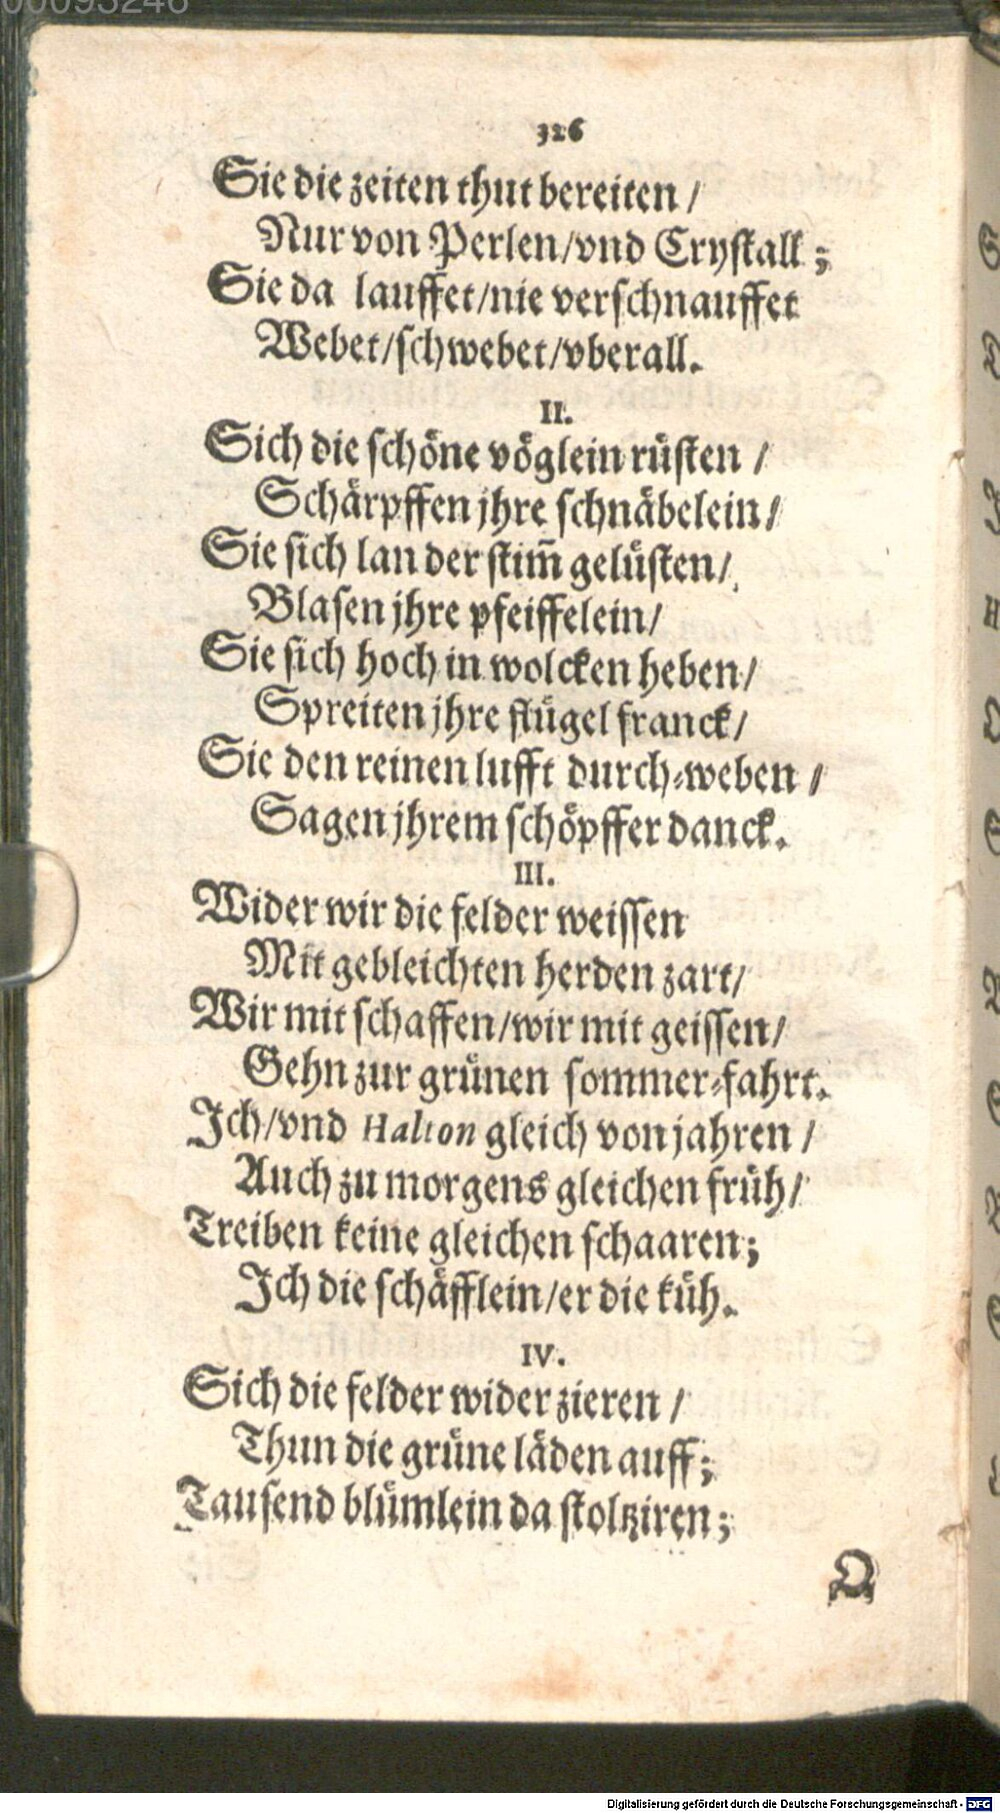 00093246
326
Sie die zeiten thut bereiten /
Nur von Perlen/vnd Crystall ;
Sie da lauffet/nie verschnauffet
Webet/schwebet/vberall.
II.
Sich die schöne vöglein rüsten /
Schärpffen jhre schnäbelein/
Sie sich lan der stim̃ gelüsten/
Blasen jhre pfeiffelein/
Sie sich hoch in wolcken heben/
Spreiten jhre flügel franck/
Sie den reinen lufft durch-weben /
Sagen jhrem schöpffer danck.
III.
Wider wir die felder weissen
Mit gebleichten herden zart/
Wir mit schaffen/wir mit geissen/
Gehn zur grünen sommer-fahrt.
Ich/vnd Halton gleich von jahren /
Auch zu morgens gleichen früh/
Treiben keine gleichen schaaren;
Ich die schäfflein/er die küh.
IV.
Sich die felder wider zieren /
Thun die grüne läden auff;
Tausend blümlein da stoltziren;
O
Digitalisierung gefördert durch die Deutsche Forschungsgemeinschaft - DFG